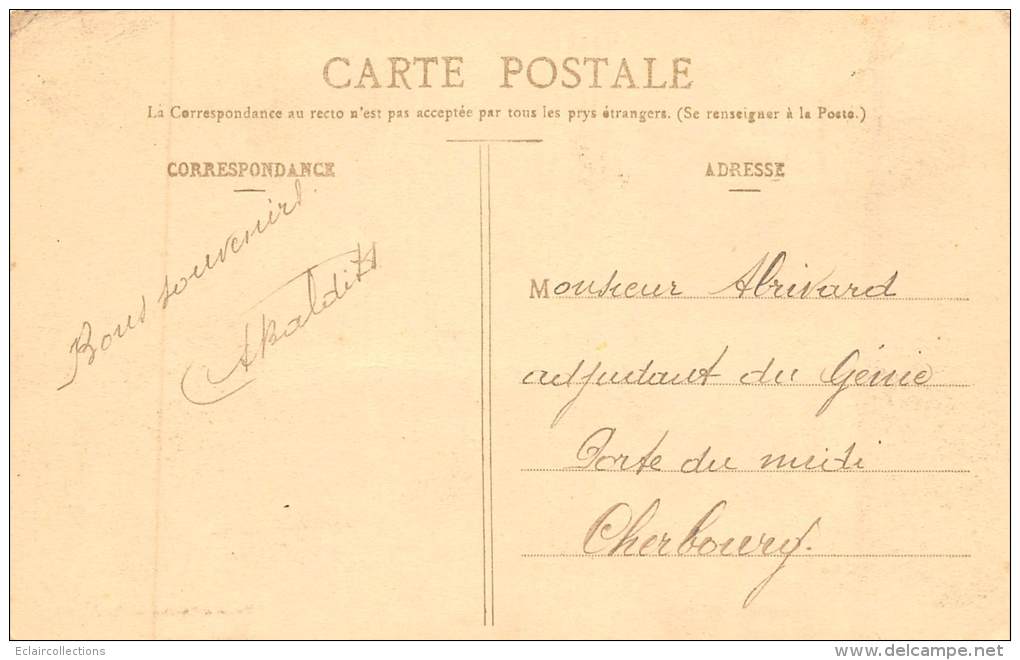 CARTE POSTALE
La Correspondance au recto n'est pas acceptée par tous les prys étrangers. (Se renseigner à la Poste.)
CORRESPONDANCE
Bons souvenirs
ADRESSE
Monsieur Abrivard
adjudant du Génie
Porte du midi
Cherbourg.
Eclaircollections
www.delcampe.net